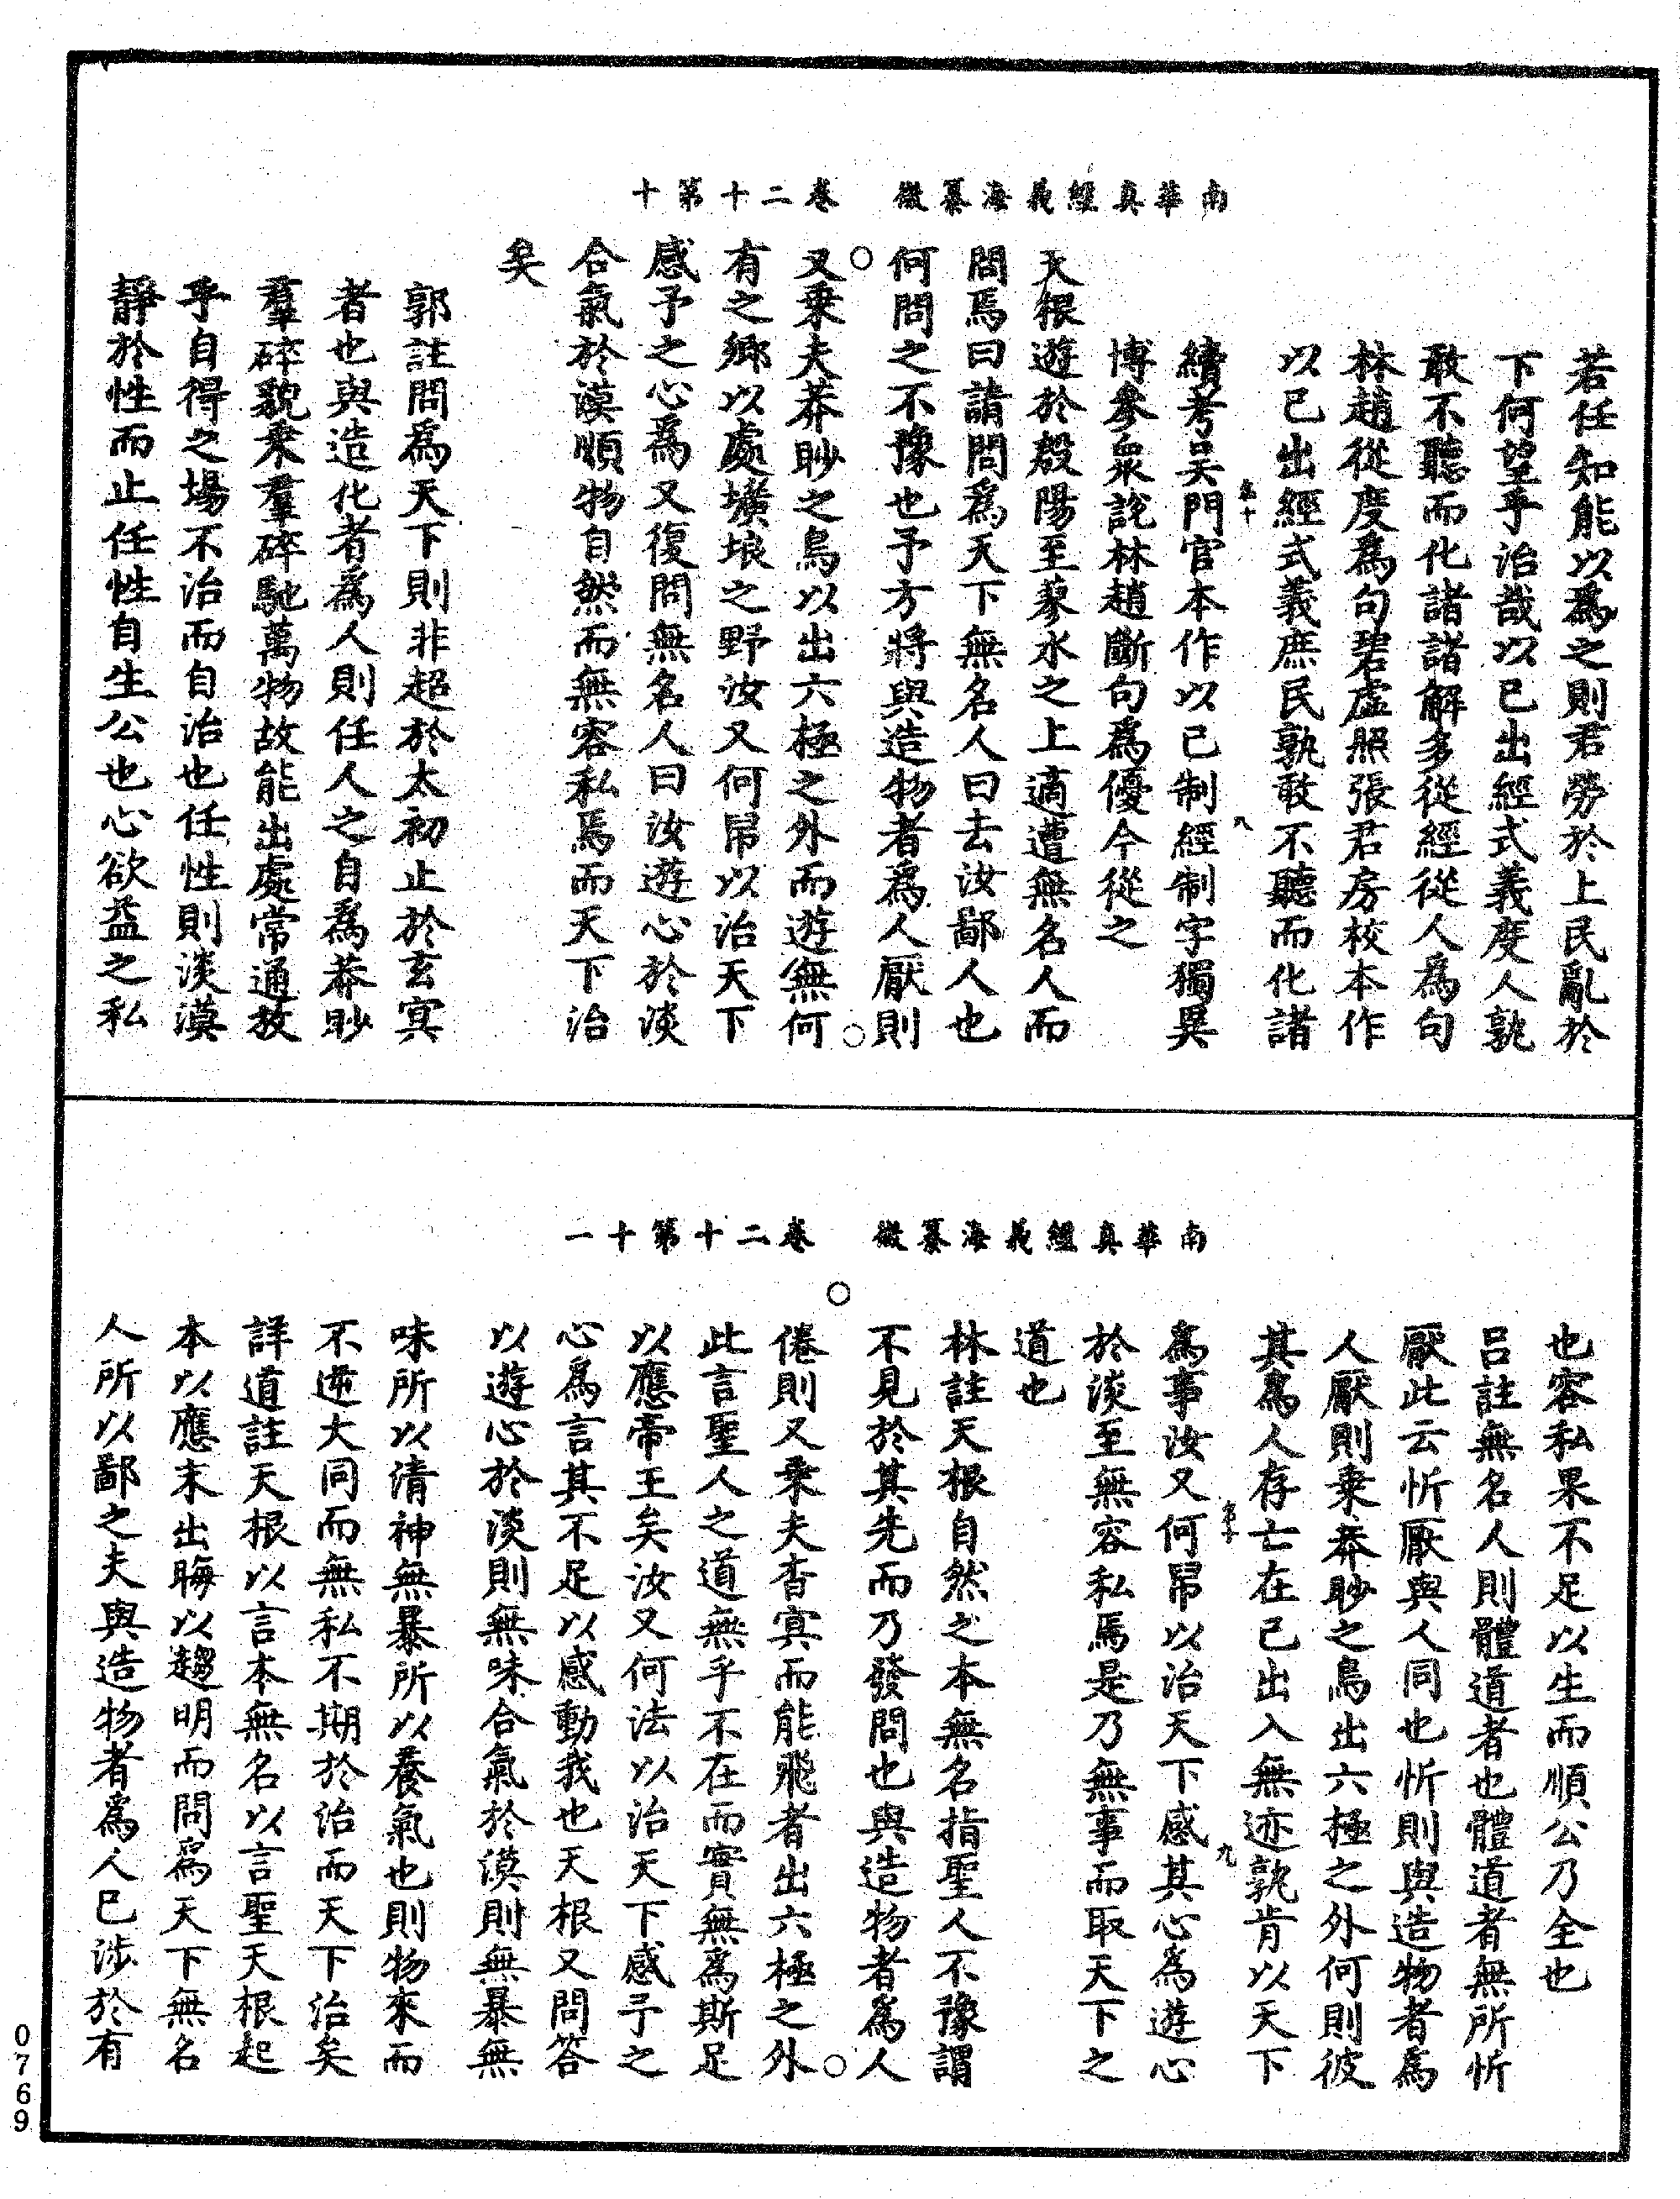 南華真經義海纂微　卷二十第十
若任知能以爲之則君勞於上民亂於
下何望乎治哉以已出經式義度人孰
敢不聽而化諸諸解多從經從人爲句
林趙從度爲句碧虛照張君房校本作
以已出經式義庶民孰敢不聽而化諸
續考吳門官本作以己制經制字獨異
博參衆說林趙斷句爲優今從之
天根遊於殷陽至蓼水之上適遭無名人而
問焉曰請問爲天下無名人曰去汝鄙人也
何問之不豫也予方將與造物者爲人厭則
又乘夫莽眇之鳥以出六極之外而遊無何
有之鄉以處壙埌之野汝又何帠以治天下
感予之心爲又復問無名人曰汝遊心於淡
合氣於漠順物自然而無容私焉而天下治
矣
郭註問爲天下則非超於太初止於玄冥
者也與造化者爲人則任人之自爲莽眇
羣碎貌乘羣碎馳萬物故能出處常通放
乎自得之場不治而自治也任性則淡漠
靜於性而止任性自生公也心欲益之私
南華真經義海纂微　卷二十第十一
也容私果不足以生而順公乃全也
呂註無名人則體道者也體道者無所忻
厭此云忻厭與人同也忻則與造物者爲
人厭則乘莽眇之鳥出六極之外何則彼
其爲人存亡在己出入無迹孰肯以天下
爲事汝又何帠以治天下感其心爲遊心
於淡至無容私焉是乃無事而取天下之
道也
林註天根自然之本無名指聖人不豫謂
不見於其先而乃發問也與造物者爲人
倦則又乘夫杳冥而能飛者出六極之外
此言聖人之道無乎不在而實無爲斯足
以應帝王矣汝又何法以治天下感予之
心爲言其不足以感動我也天根又問答
以遊心於淡則無味合氣於漠則無暴無
味所以清神無暴所以養氣也則物來而
不逆大同而無私不期於治而天下治矣
詳道註天根以言本無名以言聖天根起
本以應末出晦以趨明而問爲天下無名
人所以鄙之夫與造物者爲人已涉於有
0769